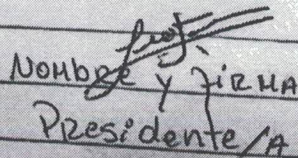 Nombre y Firma
Presidente/A